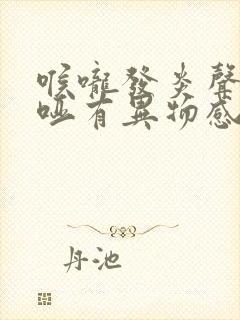 喉嚨發炎聲
啞有異物感
丹池